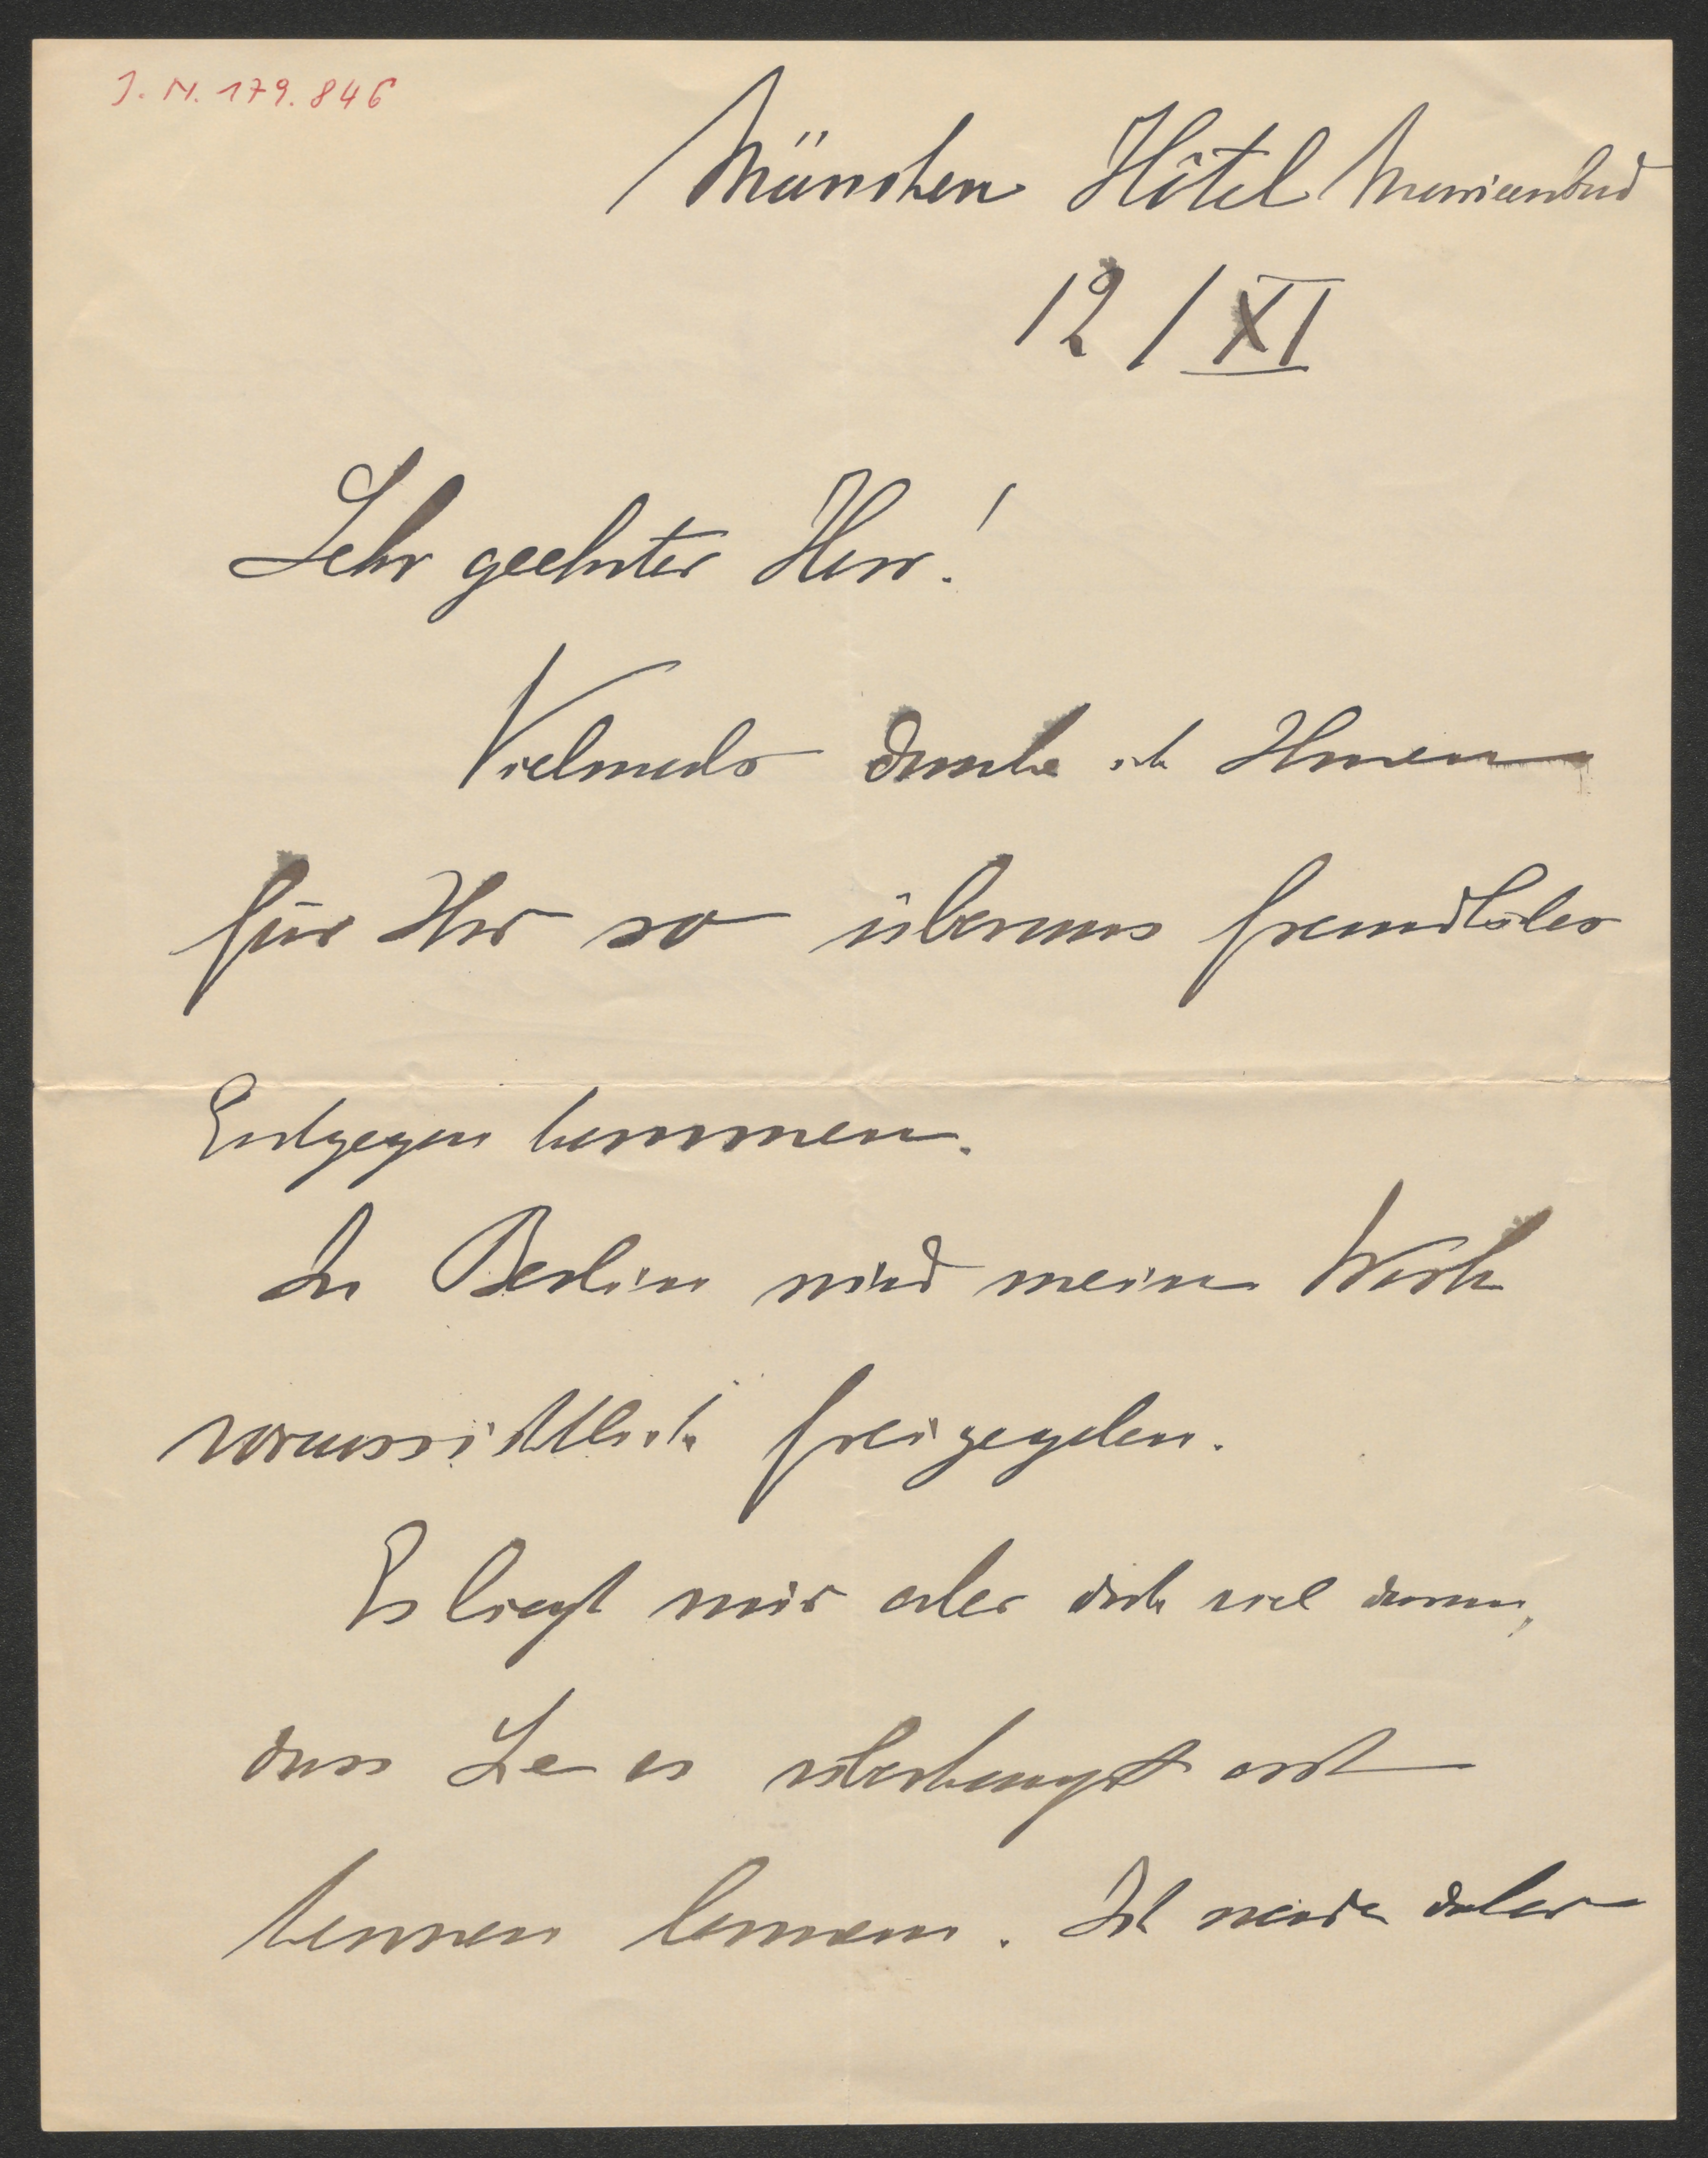 J. N. 179.846
München Hôtel Marienbad
12 / XI
Sehr geehrter Herr!
Vielmals danke ich Ihnen
für Ihr so überaus freundliches
Entgegen kommen.
In Berlin wird mein Werk
voraussichtlich freigegeben.
Es liegt mir aber doch viel daran,
dass Sie es überhaupt erst
kennen lernen. Ich werde daher